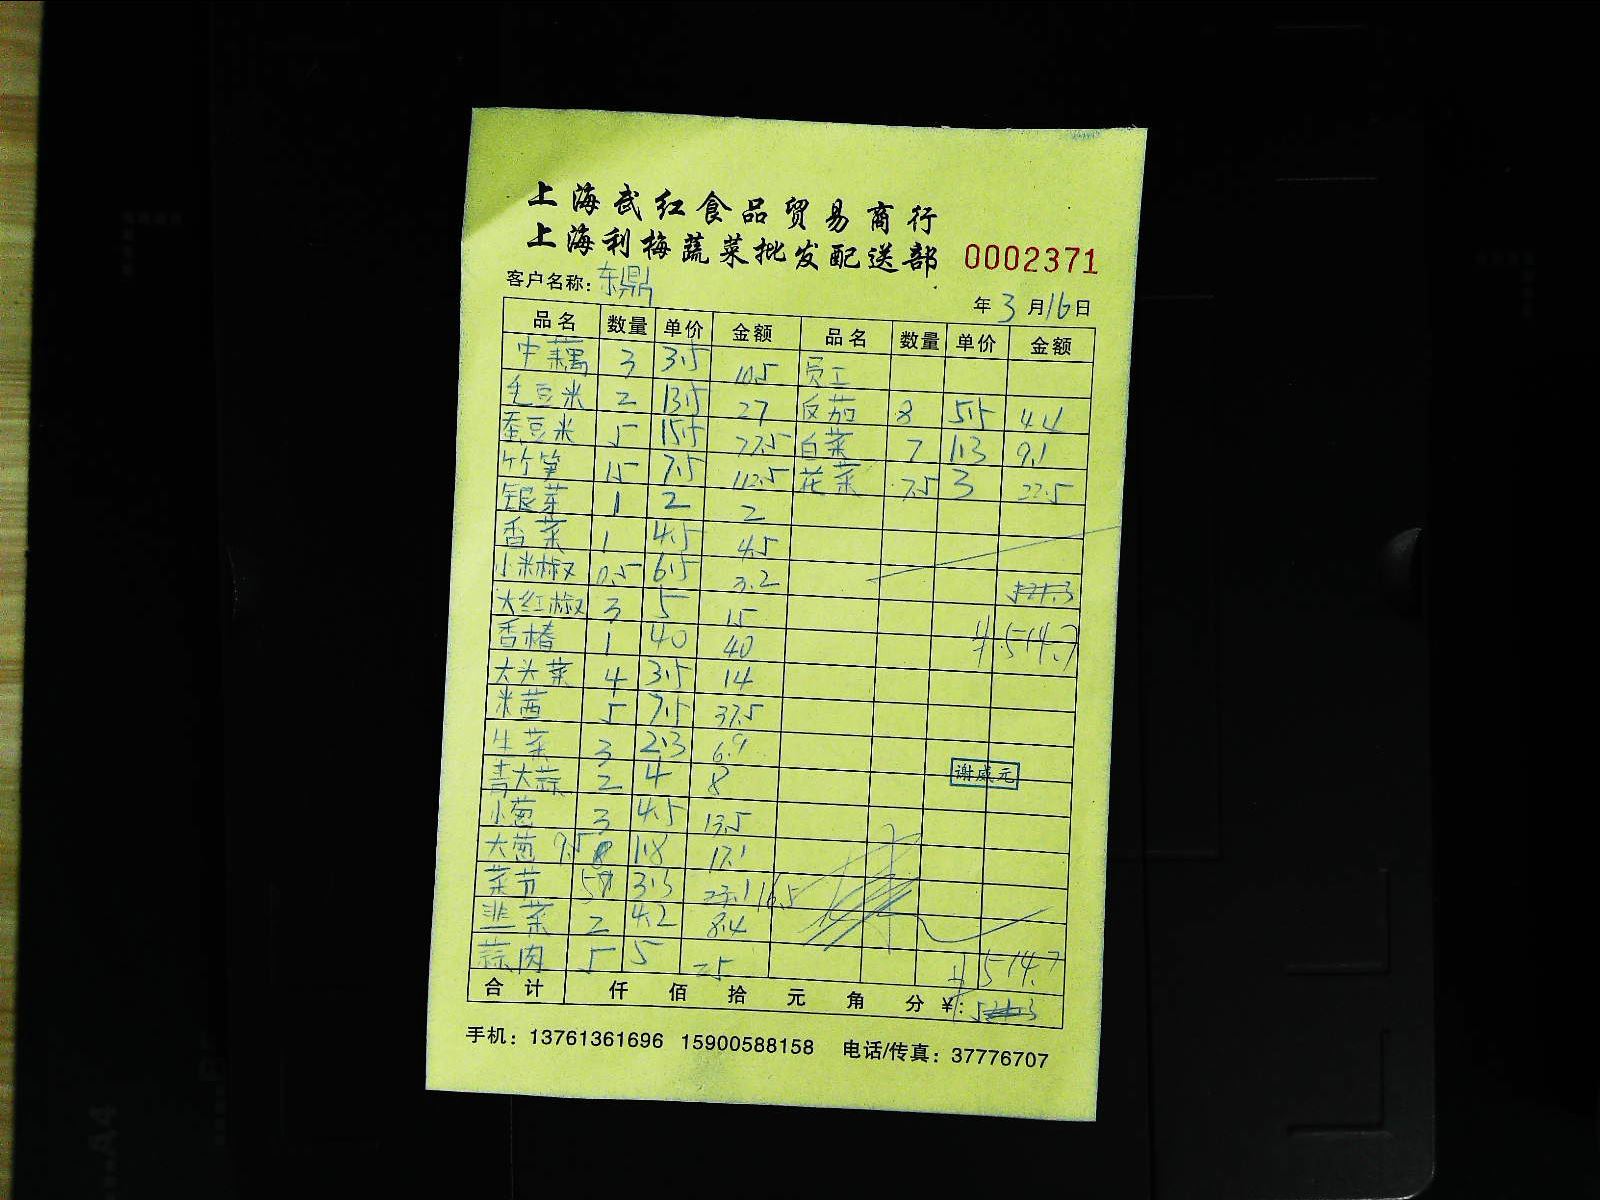 上海武红食品贸易商行
上海利梅蔬菜批发配送部 0002371
客户名称: 东鼎 年 3 月 16 日
品名 数量 单价 金额 品名 数量 单价 金额
中藕 3 3.5 10.5 员工
毛豆米 2 13.5 27 反茄 8 5.5 44
蚕豆米 5 15.5 77.5 白菜 7 1.3 9.1
竹笋 15 7.5 112.5 花菜 7.5 3 22.5
银芽 1 2 2
香菜 1 4.5 4.5
小米椒 0.5 6.5 3.2
大红椒 3 5 15
香椿 1 40 40 ¥514.7
大头菜 4 3.5 14
米茜 5 7.5 37.5
生菜 3 2.3 6.9
青大蒜 2 4 8 谢威元
小葱 3 4.5 13.5
大葱 9.5 1.8 17.1
菜节 5 3.3 23.1 16.5
韭菜 2 4.2 8.4
蒜肉 5 5 25 ¥514.7
合计 仟 佰 拾 元 角 分 ¥:
手机: 13761361696 15900588158 电话/传真: 37776707